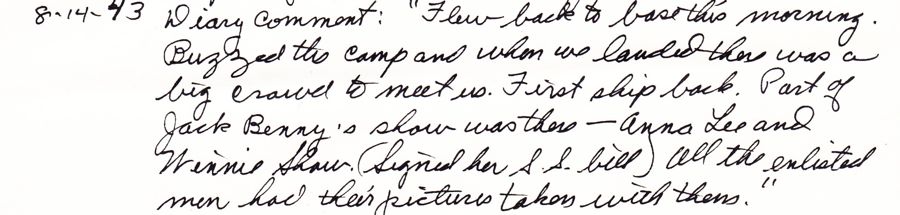 8-14-43 Diary Comment: "Flew back to base this morning.
Buzzed the camp and when we landed there was a
big crowd to meet us. First ship back. Part of
Jack Benny's show was there — Anna Lee and
Winnie Shaw. (Signed her S.S. bill) All the enlisted
men had their pictures taken with them."